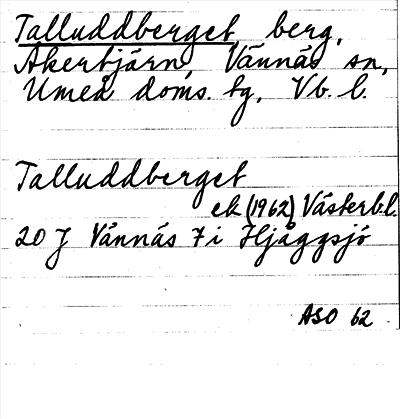 Talluddberget, berg,
Åkertjärn, Vännäs sn,
Umeå doms. tg, Vb. l.
Talluddberget
ek (1962) Västerb.l.
20 J Vännäs 7 i Hjåggsjö
ASO 62